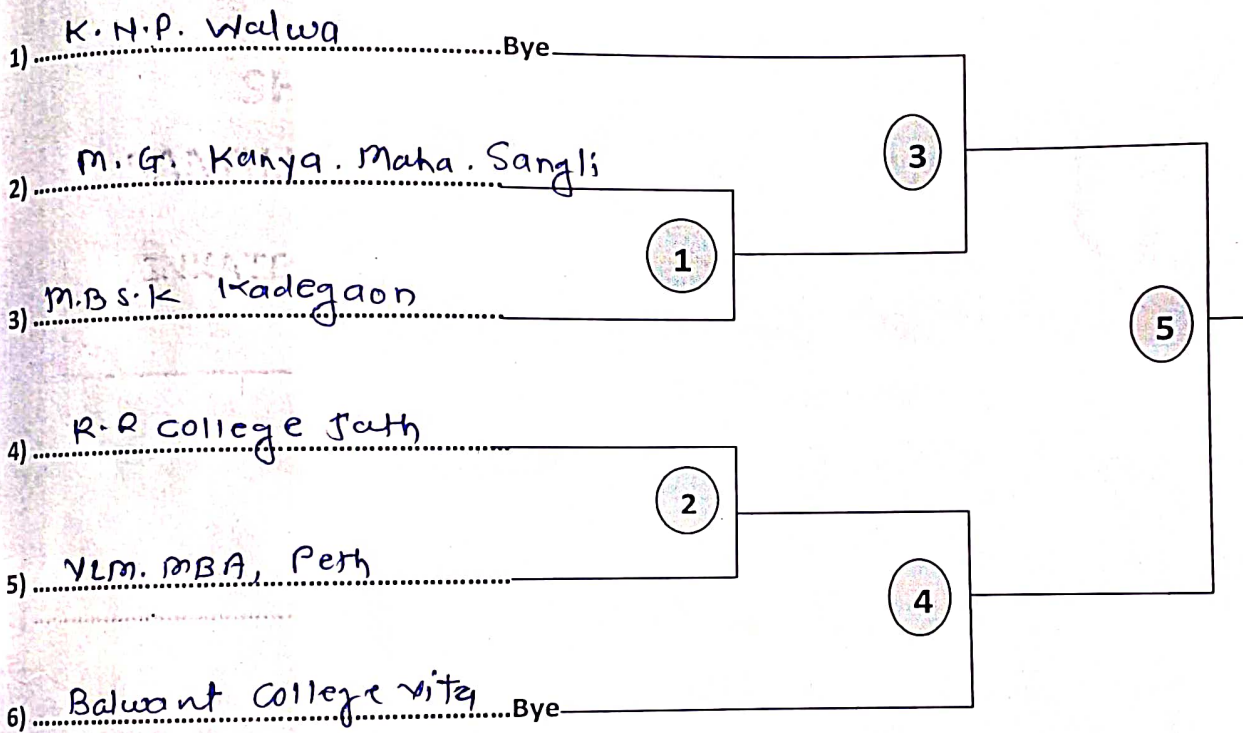 1) K.N.P. Walwa Bye
3
2) M.G. Kanya. Maha. Sangli
1
3) M.B S.K Kadegaon
5
4) R.R college Jath
2
5) VLM. MBA, Peth
4
6) Balwant College vita Bye